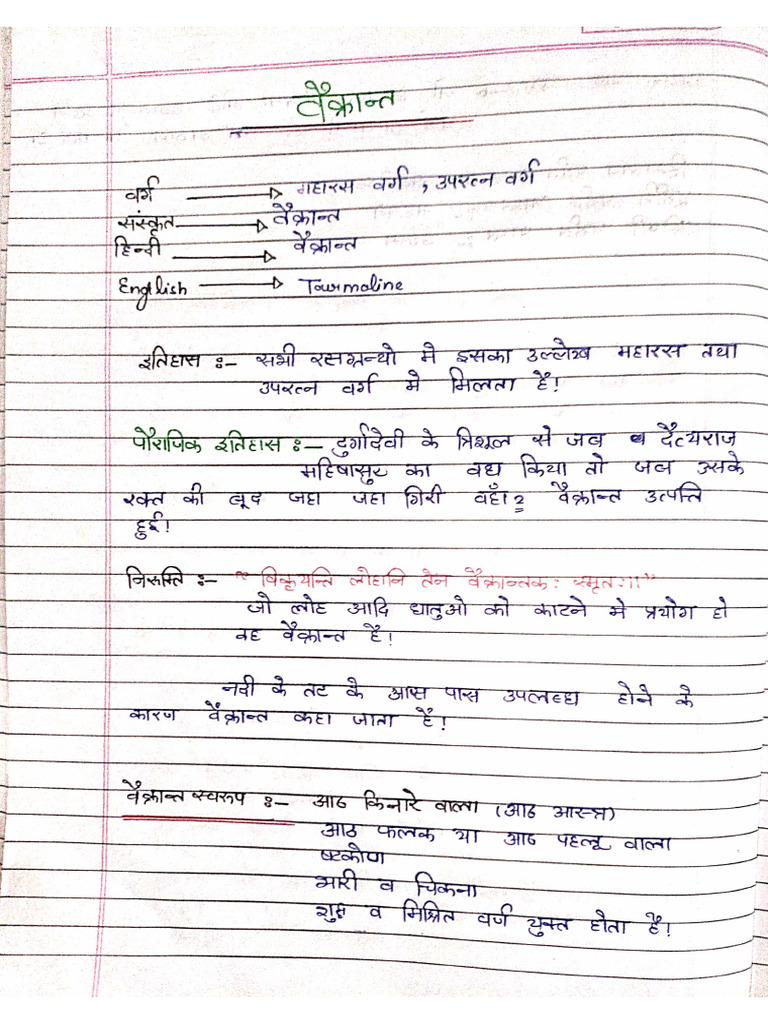 वैक्रान्त
वर्ग → महारस वर्ग , उपरत्न वर्ग
संस्कृत → वैक्रान्त
हिन्दी → वैक्रान्त
English → Tourmaline
इतिहास :- सभी रसग्रन्थो मे इसका उल्लेख महारस तथा
उपरत्न वर्ग मे मिलता है!
पौराणिक इतिहास :- दुर्गादेवी के त्रिशूल से जब दैत्यराज
महिषासुर का वध किया तो जब उसके
रक्त की बूद जहा जहा गिरी वहाँ २ वैक्रान्त उत्पत्ति
हुई!
निरुक्ति :- "विकृन्यन्ति लोहानि तेन वैक्रान्तकः स्मृतः।।"
जो लोह आदि धातुओ को काटने मे प्रयोग हो
वह वैक्रान्त है!
नदी के तट के आस पास उपलब्ध होने के
कारण वैक्रान्त कहा जाता है!
वैक्रान्त स्वरुप :- आठ किनारे वाला (आठ आस्त्र)
आठ फलक या आठ पहलू वाला
षटकोण
भारी व चिकना
शुद्ध व मिश्रित वर्ण युक्त होता है!